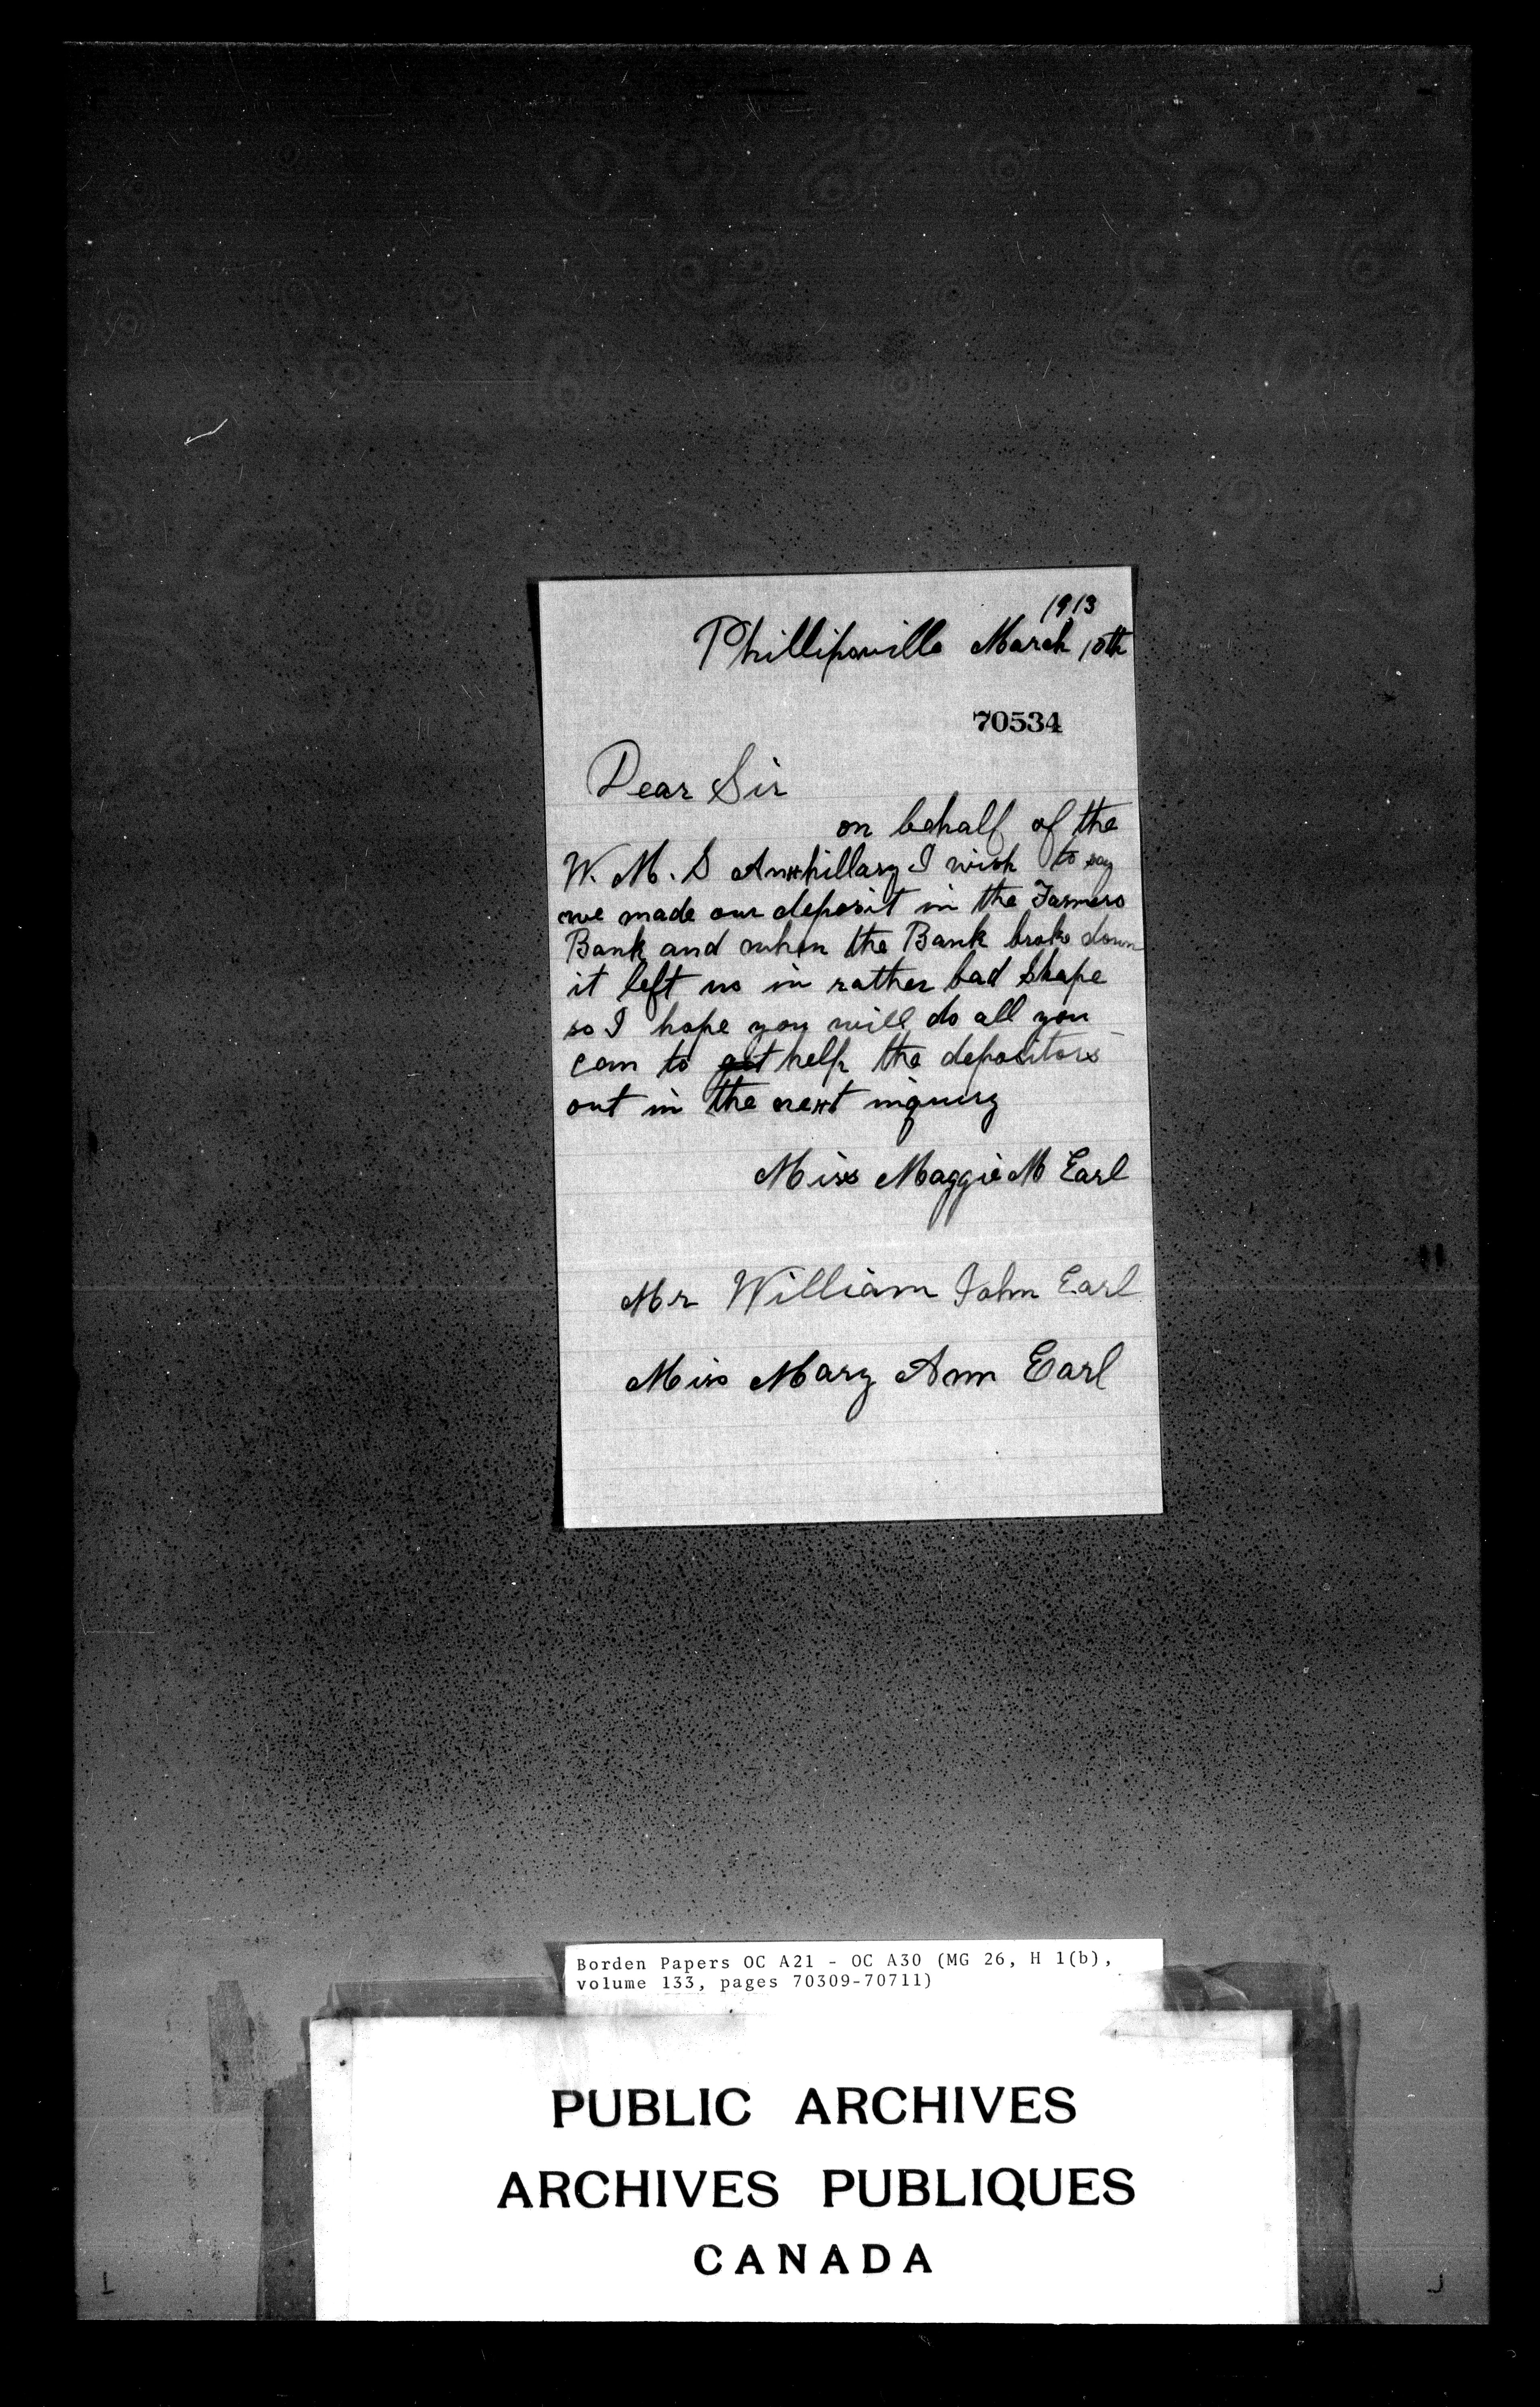 1913
Phillipsville March 10th
70534
Dear Sir
on behalf of the
W. M. S Auxhillary I wish to say
we made our deposit in the Farmers
Bank and when the Bank broke down
it left us in rather bad shape
so I hope you will do all you
can to get help the depositors
out in the next inquiry
Miss Maggie M Earl
Mr William John Earl
Miss Mary Ann Earl
Borden Papers OC A21 - OC A30 (MG 26, H 1(b),
volume 133, pages 70309-70711)
PUBLIC ARCHIVES
ARCHIVES PUBLIQUES
CANADA